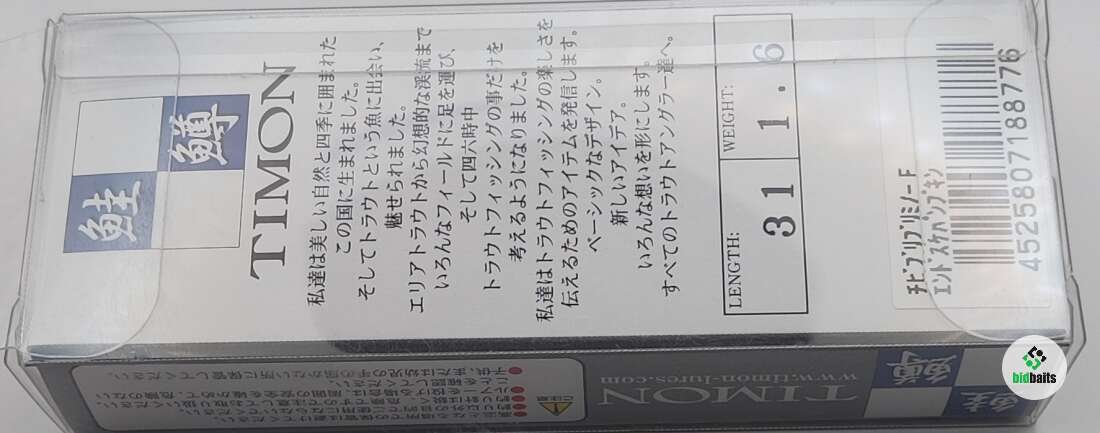 鮭
鱒
TIMON
私達は美しい自然と四季に囲まれた
この国に生まれました。
そしてトラウトという魚に出会い、
魅せられました。
エリアトラウトから幻想的な渓流まで
いろんなフィールドに足を運び、
そして四六時中
トラウトフィッシングの事だけを
考えるようになりました。
私達はトラウトフィッシングの楽しさを
伝えるためのアイテムを発信します。
ベーシックなデザイン。
新しいアイデア。
いろんな想いを形にします。
すべてのトラウトアングラー達へ。
LENGTH:
WEIGHT:
31
1.6
チビプリプリミノーF
エンドスケパンプキン
4525807188776
鮭
鱒
TIMON
www.timon-lures.com
bidbaits